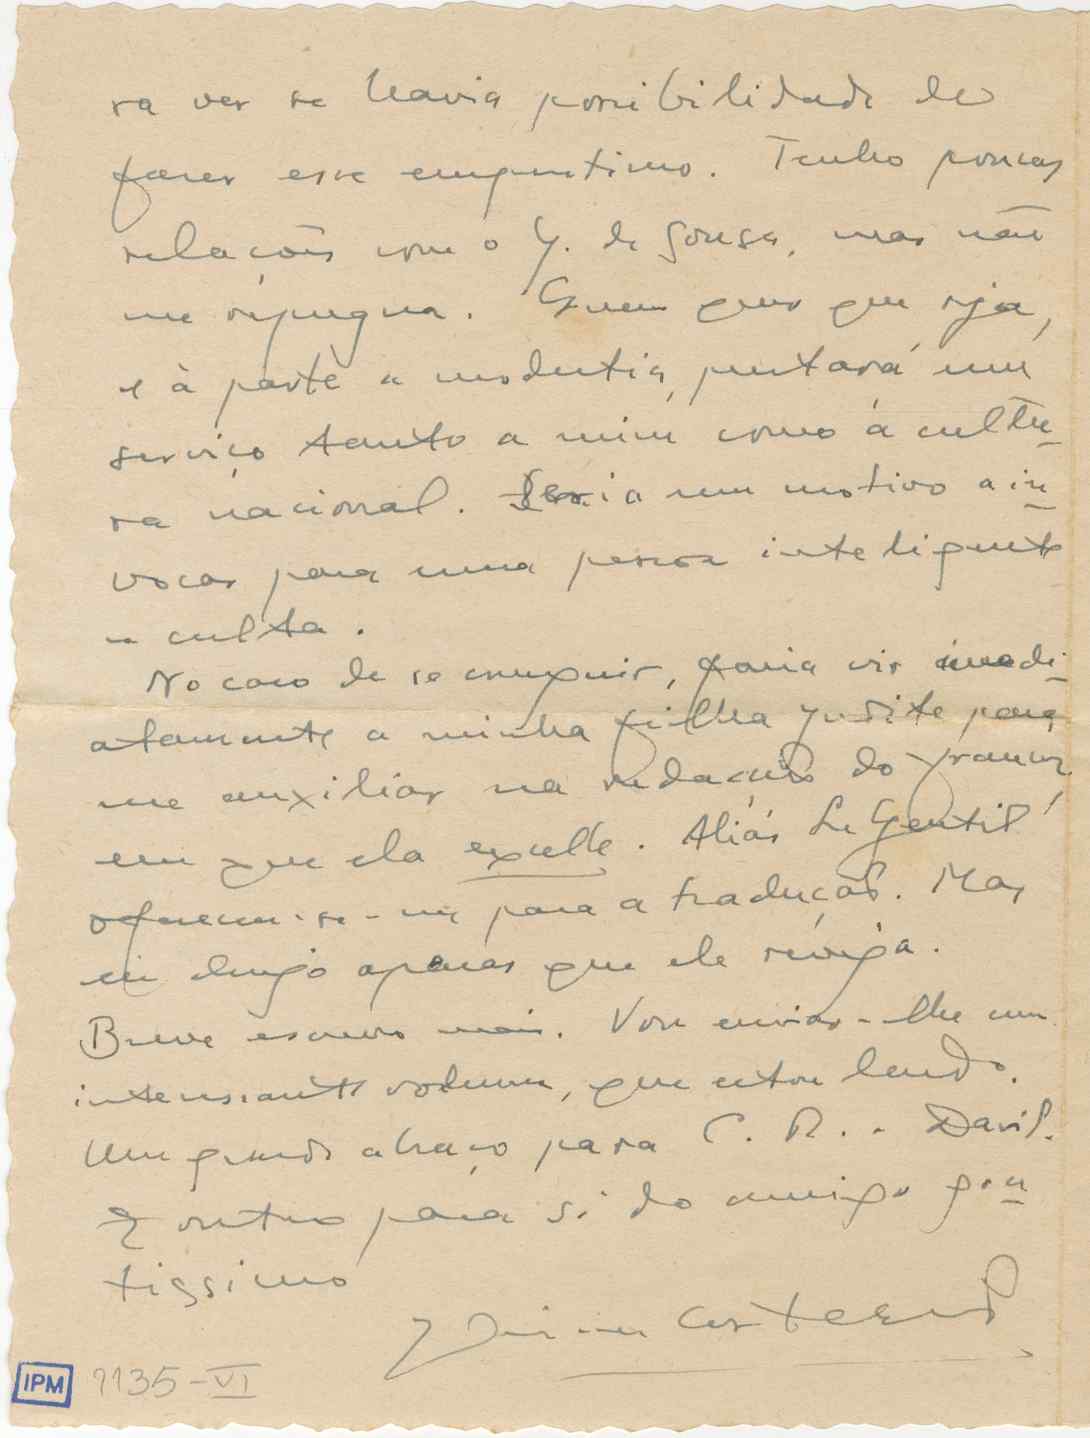 ra ver se havia possibilidade de
fazer esse empréstimo. Tenho poucas
relações com o T. de Sousa, mas não
me repugna. Quem quer que seja,
e à parte a modéstia, prestará um
serviço tanto a mim como à cultu-
ra nacional. Seria um motivo a in-
vocar para uma pessoa inteligente
e culta.
No caso de se conseguir, faria vir imedi-
atamente a minha filha Judite para
me auxiliar na redacção do francês,
em que ela excelle. Aliás Le Gentil
ofereceu-se-me para a tradução. Mas
eu desejo apenas que ele reveja.
Breve escrevo mais. Vou enviar-lhe um
interessante volume, que estou lendo.
Um grande abraço para C. R. e David.
E outro para si do amigo gra-
tíssimo
Jaime Cortesão
IPM 1135-VI